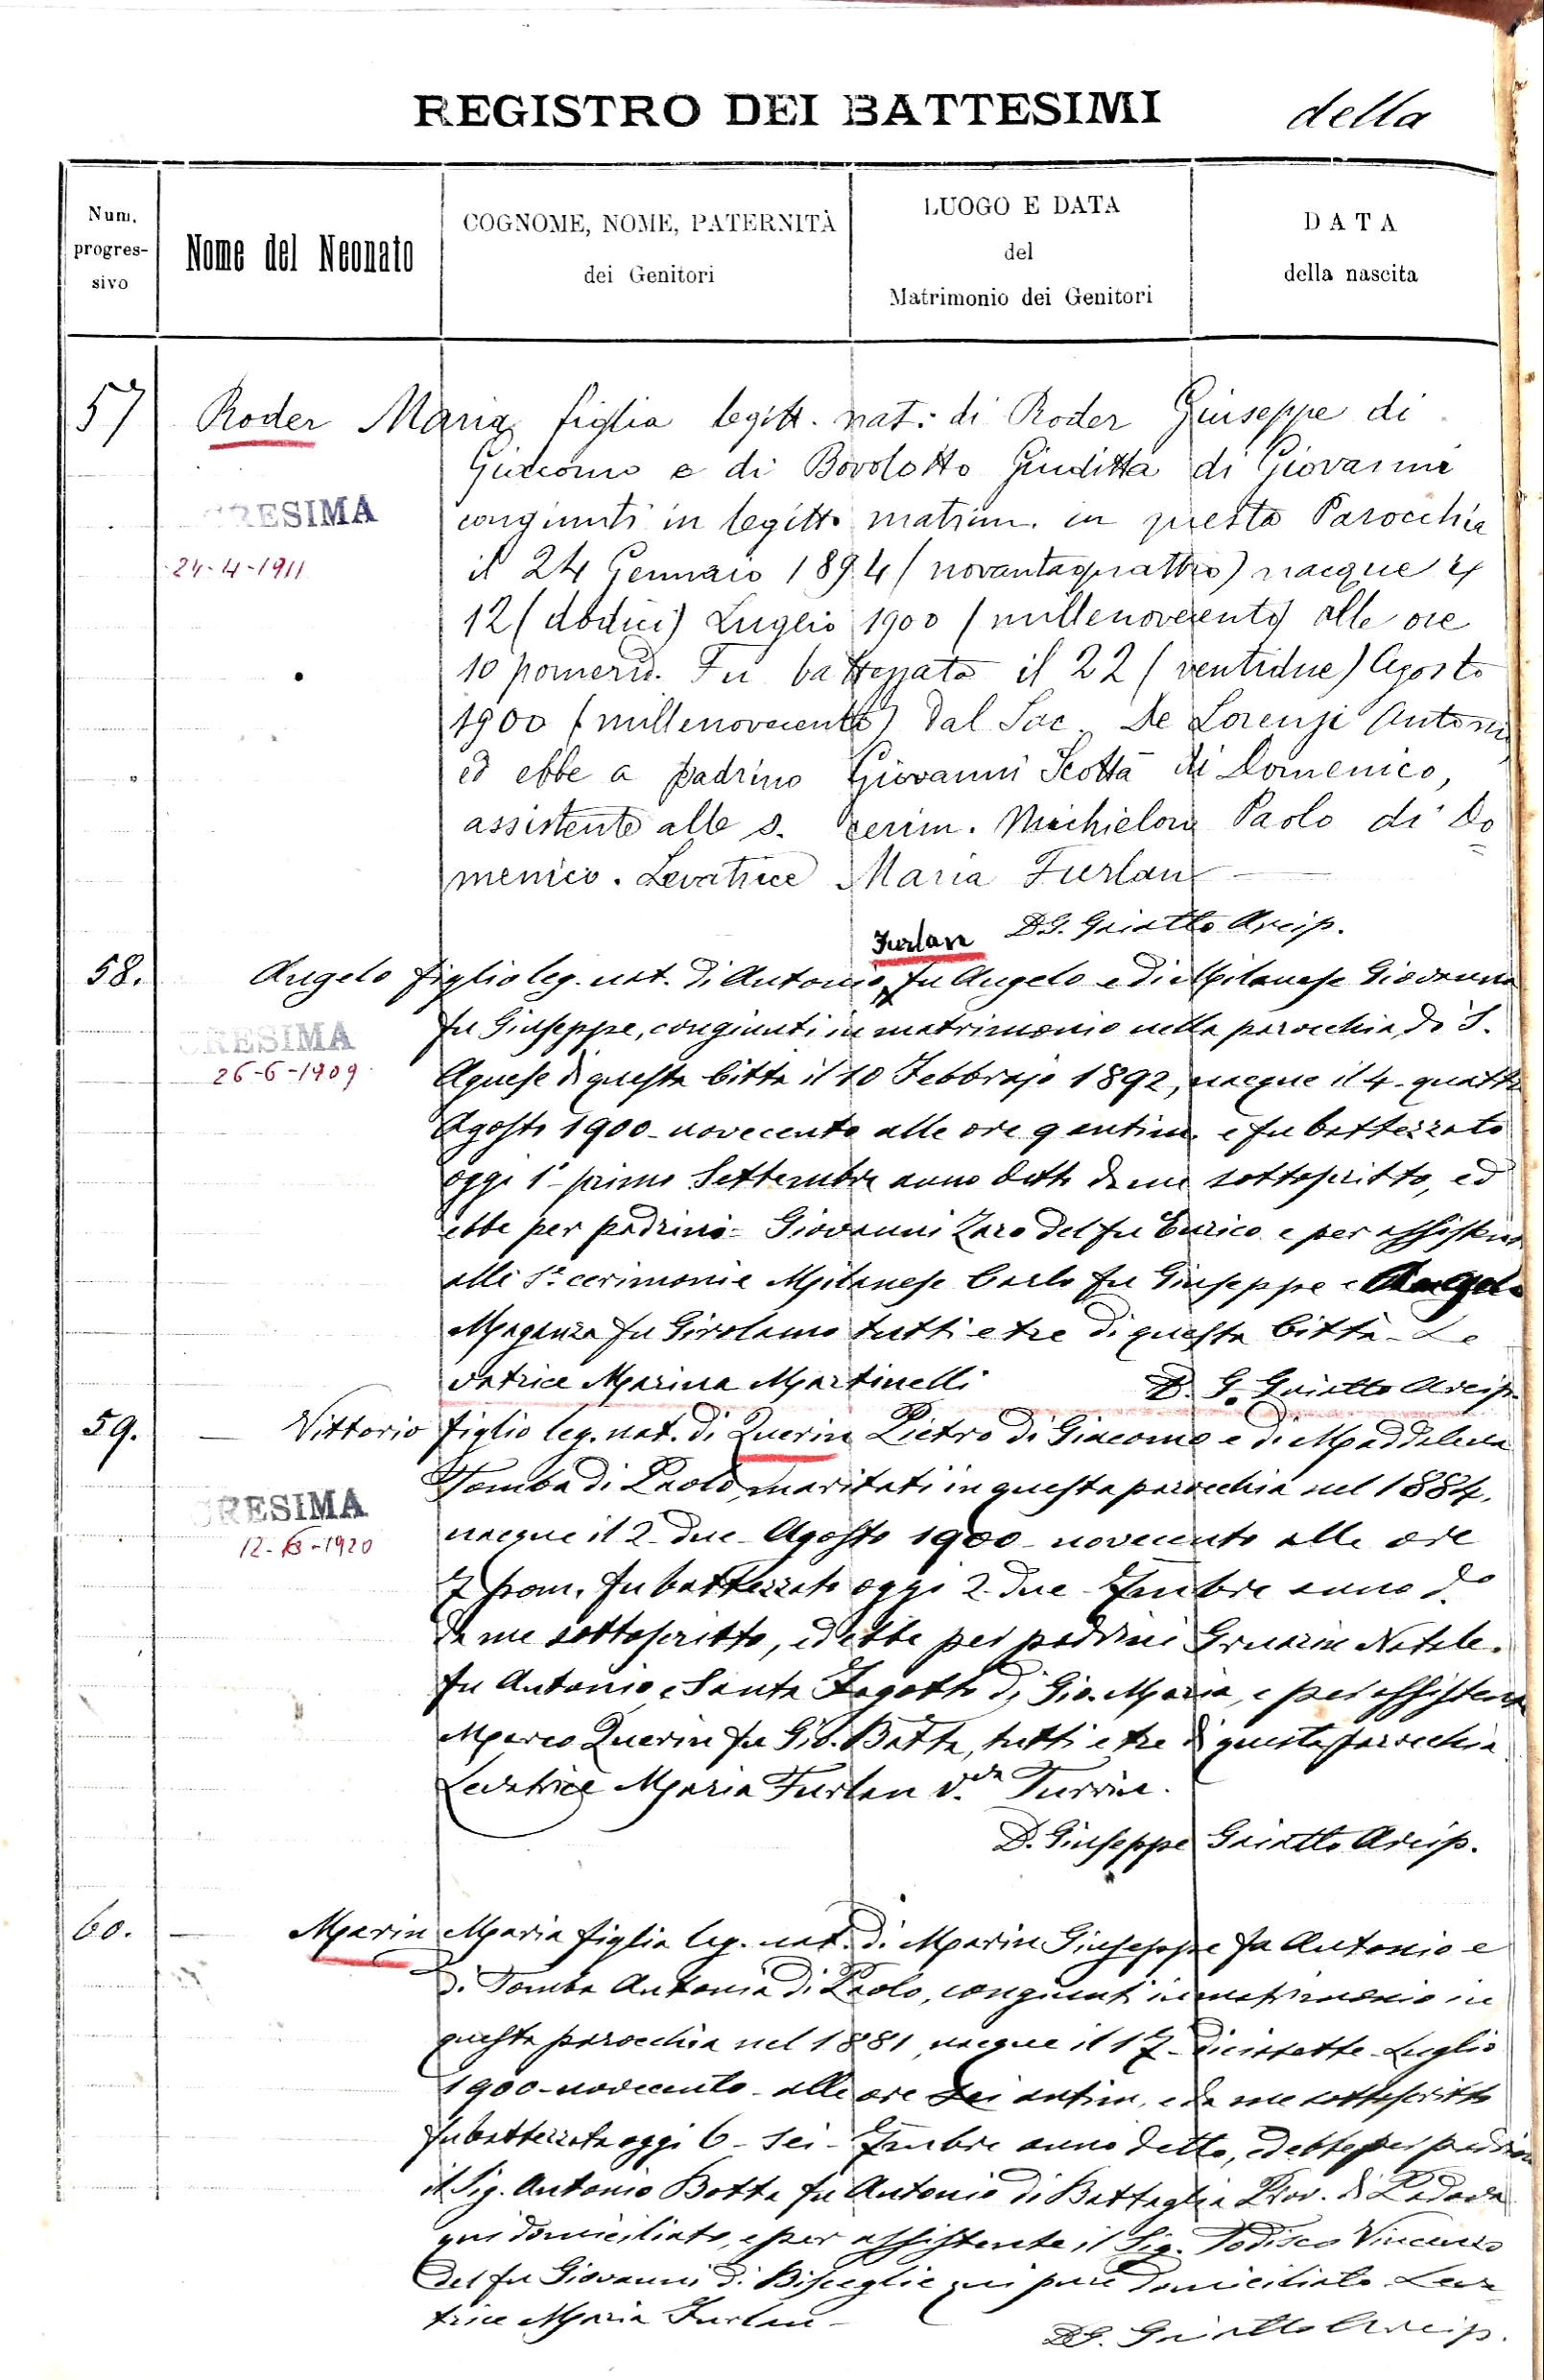 REGISTRO DEI BATTESIMI della
Num. progres- sivo
Nome del Neonato
COGNOME, NOME, PATERNITÀ
dei Genitori
LUOGO E DATA
del
Matrimonio dei Genitori
DATA
della nascita
57 Roder Maria figlia legitt. nat: di Roder Giuseppe di
Giacomo e di Bovolotto Giuditta di Giovanni
CRESIMA
congiunti in legitto matrim. in questa Parocchia
24-4-1911
il 24 Gennaio 1894 (novantaquattro) nacque il
12 (dodici) Luglio 1900 (millenovecento) alle ore
10 pomerid. Fu battezzata il 22 (ventidue) Agosto
1900 (millenovecento) dal Sac. De Lorenzi Antonio
ed ebbe a padrino Giovanni Scottà di Domenico,
assistente alle s. cerim. Michielon Paolo di Do
menico. Levatrice Maria Furlan
D G. Griatto Arcip.
Furlan
58. Angelo figlio leg. nat. di Antonio fu Angelo e di Milanese Giovanna
fu Giuseppe, congiunti in matrimonio nella parocchia di S.
CRESIMA
26-6-1909
Agnese di questa Città il 10 Febbrajo 1892, nacque il 4 - quattro
Agosto 1900 - novecento alle ore 9 antim. e fu battezzato
oggi 1° - primo Settembre anno detto da me sottoscritto, ed
ebbe per padrino - Giovanni Zaro del fu Enrico e per assistenti
alle Se cerimonie Milanese Carlo fu Giuseppe e Angelo
Maganza fu Girolamo tutti e tre di questa Città - Le
vatrice Marina Martinelli
D. G. Griatto Arcip.
59. Vittorio figlio leg. nat. di Querin Pietro di Giacomo e di Maddalena
Tomba di Paolo, maritati in questa parocchia nel 1884,
CRESIMA
nacque il 2 - due - Agosto 1900 - novecento alle ore
12- -1920
7 pom. fu battezzato oggi 2 - due - 7mbre anno do
da me sottoscritto, ed ebbe per padrini Gruarin Natale
fu Antonio e Santa Zagotto di Gio. Maria, e per assistente
Marco Querin fu Gio. Batta, tutti e tre di questa parocchia
Levatrice Maria Furlan v.da Turrin.
D. Giuseppe Griatto Arcip.
60. Marin Maria figlia leg. nat. di Marin Giuseppe fu Antonio e
di Tomba Antonia di Paolo, congiunti in matrimonio in
questa parocchia nel 1881, nacque il 17 - diciassette Luglio
1900 - novecento - alle ore sei antim. e da me sottoscritto
fu battezzata oggi 6 - sei - 7mbre anno detto, ed ebbe per padrino
il Sig. Antonio Botta fu Antonio di Battaglia Prov. di Padova
qui domiciliato, e per assistente il Sig. Todisco Vincenzo
del fu Giovanni di Bisceglie qui pure domiciliato Leva
trice Maria Furlan -
D G. Griatto Arcip.